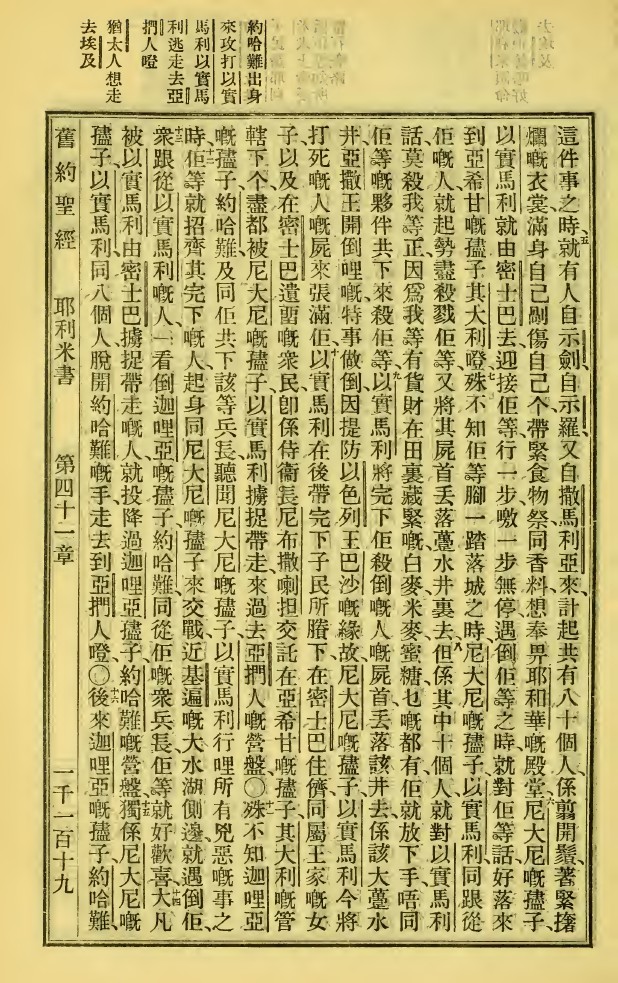 約哈難出身
來攻打以實
馬利以實馬
利逃走去亞
捫人嶝
猶太人想走
去埃及
這件事之時、五就有人自示劍自示羅又自撒馬利亞來、計起共有八十個人、係剪開鬚、著緊搼
爛嘅衣裳、滿身自己剮傷自己、个帶緊食物祭同香料、想奉畀耶和華嘅殿堂、六尼大尼嘅孻子、
以實馬利就由密士巴去迎接佢等、行一步噭一步無停、遇倒佢等之時、就對佢等話、好落來
到亞希甘嘅孻子其大利嶝、七殊不知佢等腳一踏落城之時、尼大尼嘅孻子以實馬利、同跟從
佢嘅人、就起勢盡殺戮佢等、又將其屍首丟落薹水井裏去、八但係其中十個人就對以實馬利
話、莫殺我等、正因爲我等有貨財在田裏藏緊嘅白麥米麥蜜糖乜嘅都有、佢就放下手唔同
佢等嘅夥伴共下來殺佢等、九以實馬利將完下佢殺倒嘅人嘅屍首丟落該井去、係該大薹水
井亞撒王開倒哩嘅特事做倒因提防以色列王巴沙嘅緣故、尼大尼嘅孻子以實馬利今將
打死嘅人嘅屍來張滿佢、十以實馬利在後帶完下子民所賸下在密士巴住、儕同屬王家嘅女
子、以及在密士巴遺畱嘅衆民、卽係侍衞長尼布撒喇担交託在亞希甘嘅孻子其大利嘅管
轄下个、盡都被尼大尼嘅孻子以實馬利擄捉帶走、來過去亞捫人嘅營盤〇十一殊不知迦哩亞
嘅孻子約哈難及同佢共下該等兵長、聽聞尼大尼嘅孻子以實馬利行哩所有兇惡嘅事之
時、十二佢等就招齊其完下嘅人起身同尼大尼嘅孻子來交戰、近基遍嘅大水湖側邊就遇倒佢、
十三衆跟從以實馬利嘅人、一看倒迦哩亞嘅孻子約哈難、同從佢嘅衆兵長、佢等就好歡喜、十四大凡
被以實馬利由密士巴擄捉帶走嘅人、就投降過迦哩亞孻子約哈難嘅營盤、十五獨係尼大尼嘅
孻子以實馬利同八個人脫開約哈難嘅手、走去到亞捫人嶝〇十六後來迦哩亞嘅孻子約哈難、
舊約聖經 耶利米書 第四十一章 一千一百十九